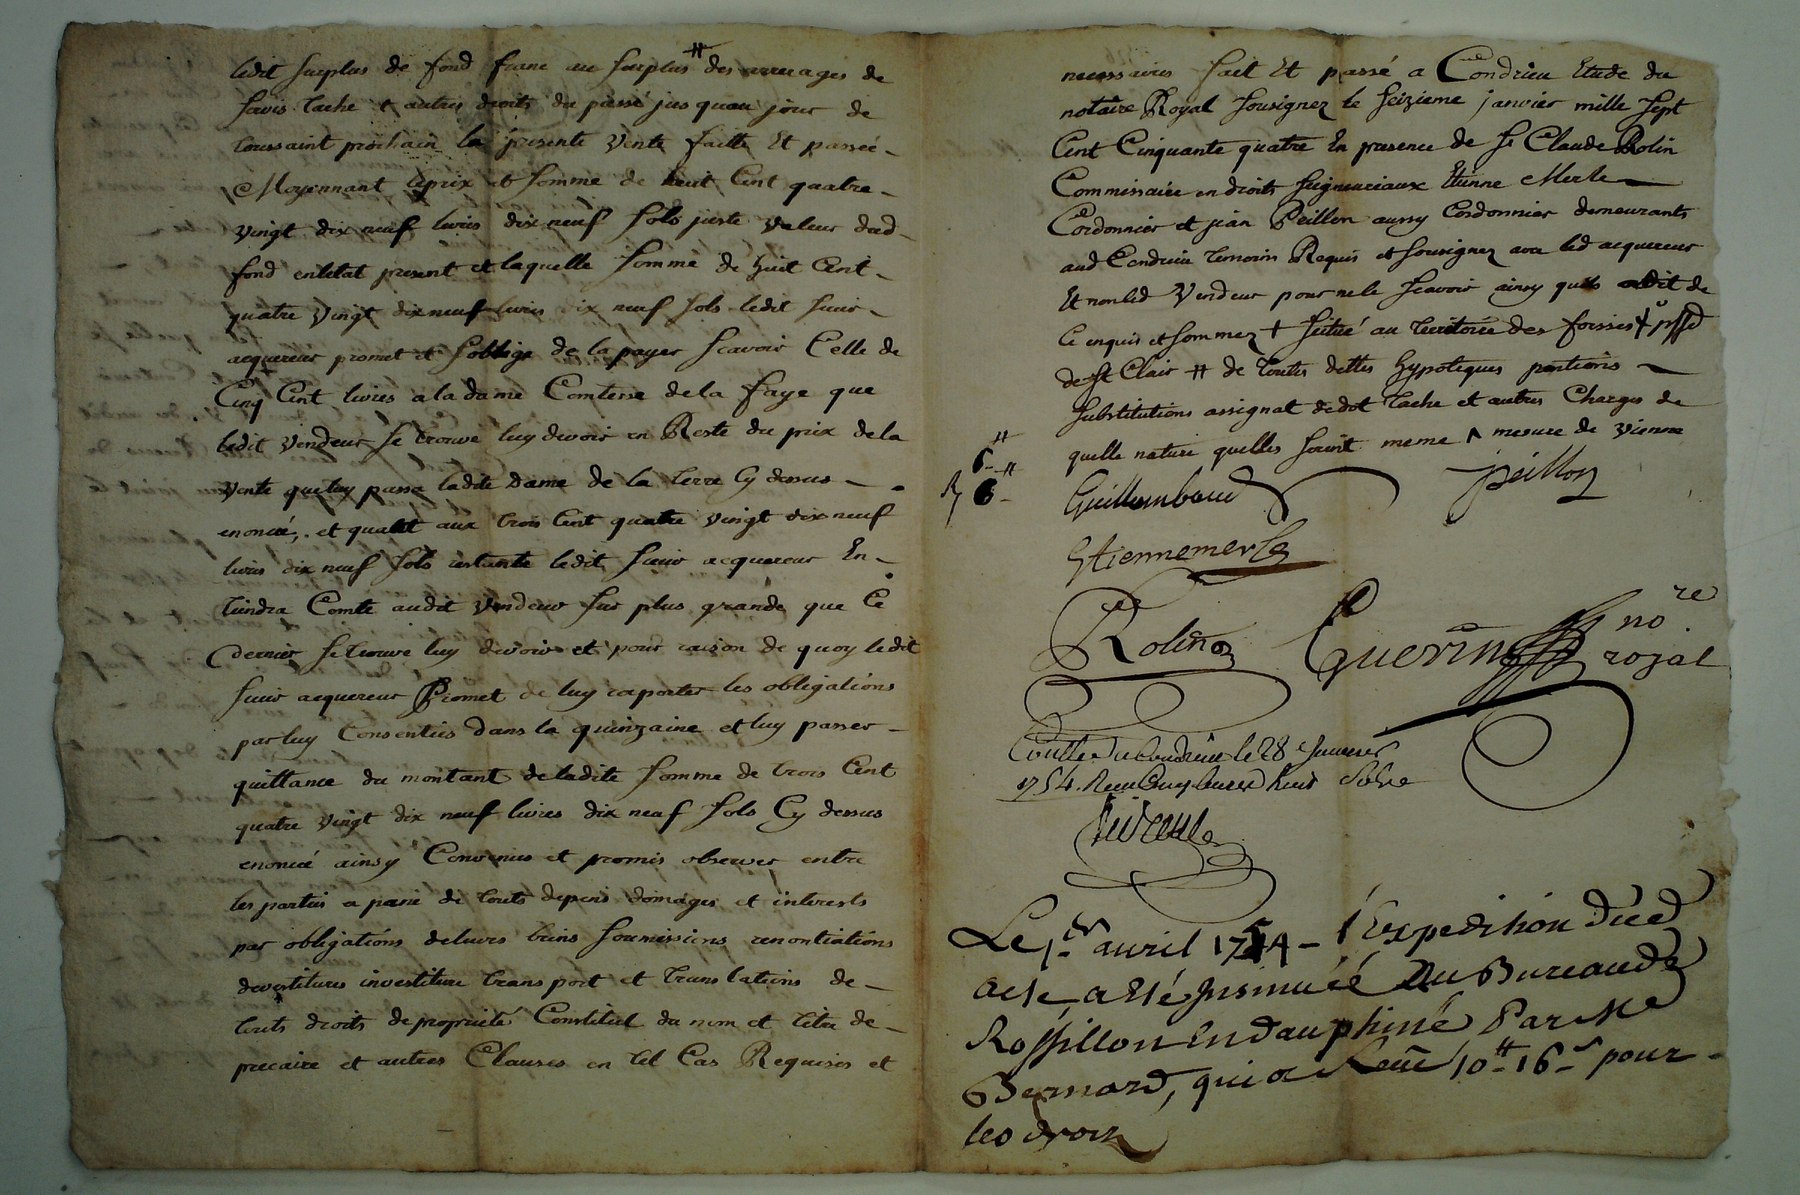 ledit surplus de fond franc au surplus # des arrerages de
servis tache et autres droits du passé jusquau jour de
toussaint prochain la presente vente faitte Et passée
Moyennant leprix et somme de huit Cent quatre
vingt dix neuf livres dix neuf sols juste valeur dud
fond enletat present et laquelle somme de huit Cent
quatre vingt dix neuf livres dix neuf sols ledit sieur
acquereur promet et soblige de la payer scavoir Celle de
Cinq Cent livres a la dame Comtesse de la faye que
ledit vendeur se trouve luy devoir en Reste du prix de la
vente que luy passa ladite Dame de la terre Cy dessus
enoncé, et quant aux trois Cent quatre vingt dix neuf
livres dix neuf sols restante ledit sieur acquereur En
tiendra Comte audit vendeur sur plus grande que Ce
dernier se trouve luy devoir et pour raison de quoy ledit
sieur acquereur Promet de luy raporter les obligations
par luy Consenties dans la quinzaine et luy passer
quittance du montant deladite somme de trois Cent
quatre vingt dix neuf livres dix neuf sols Cy dessus
enoncé ainsy Convenus et promis observer entre
les parties a peine de touts depens domages et interests
par obligations deleurs biens soumissions renontiations
devestitures investiture transport et translations de
touts droits de propriété Constitut du nom et titre de
precaire et autres Clauses en tel Cas Requises et
necessaires fait Et passé a Condrieu Etude du
notaire Royal sousignez le seizieme janvier mille sept
Cent Cinquante quatre En presence de Sr Claude Rolin
Commissaire en droits seigneuriaux Etienne Merle
Cordonnier et jean Peillon aussy Cordonnier demeurants
aud Condrieu temoins Requis et sousignez avec led acquereur
Et non led vendeur pour ne le scavoir ainsy quils a dit de
Ce enquis et sommez + situé au territoire des fosses
de St Clair # de toutes dettes hypoteques pentions
substitutions assignat de dot tache et autres Charges de
quelle nature quelles soient meme ^ mesure de vienne
6 #
R 6 #
Guillumbaud peillon
Etiennemerle
Rolin Guerin nore
royal
Contlle du Condrieu le 28 Janvier
1754. Recu huit
Le 1er avril 1754 - l'Expedition dud
acte a eté Insinuéé Au Bureau de
Rossillon En dauphiné Par Me
Bernard, qui a Recu 10# 16s pour
les droits